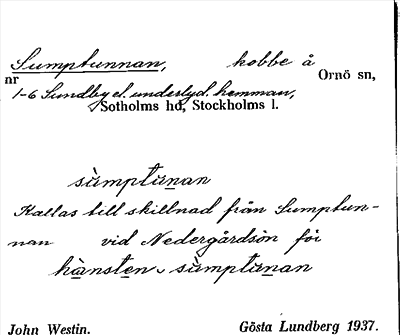 Sumptunnan, kobbe å
nr Ornö sn,
1-6 Sundby el. underlyd. hemman,
Sotholms hd, Stockholms l.
sùmptu̲nan
Kallas till skillnad från Sumptun-
nan vid Nedergårdsön för
hä̀nste̲n sùmptu̲nan
John Westin. Gösta Lundberg 1937.